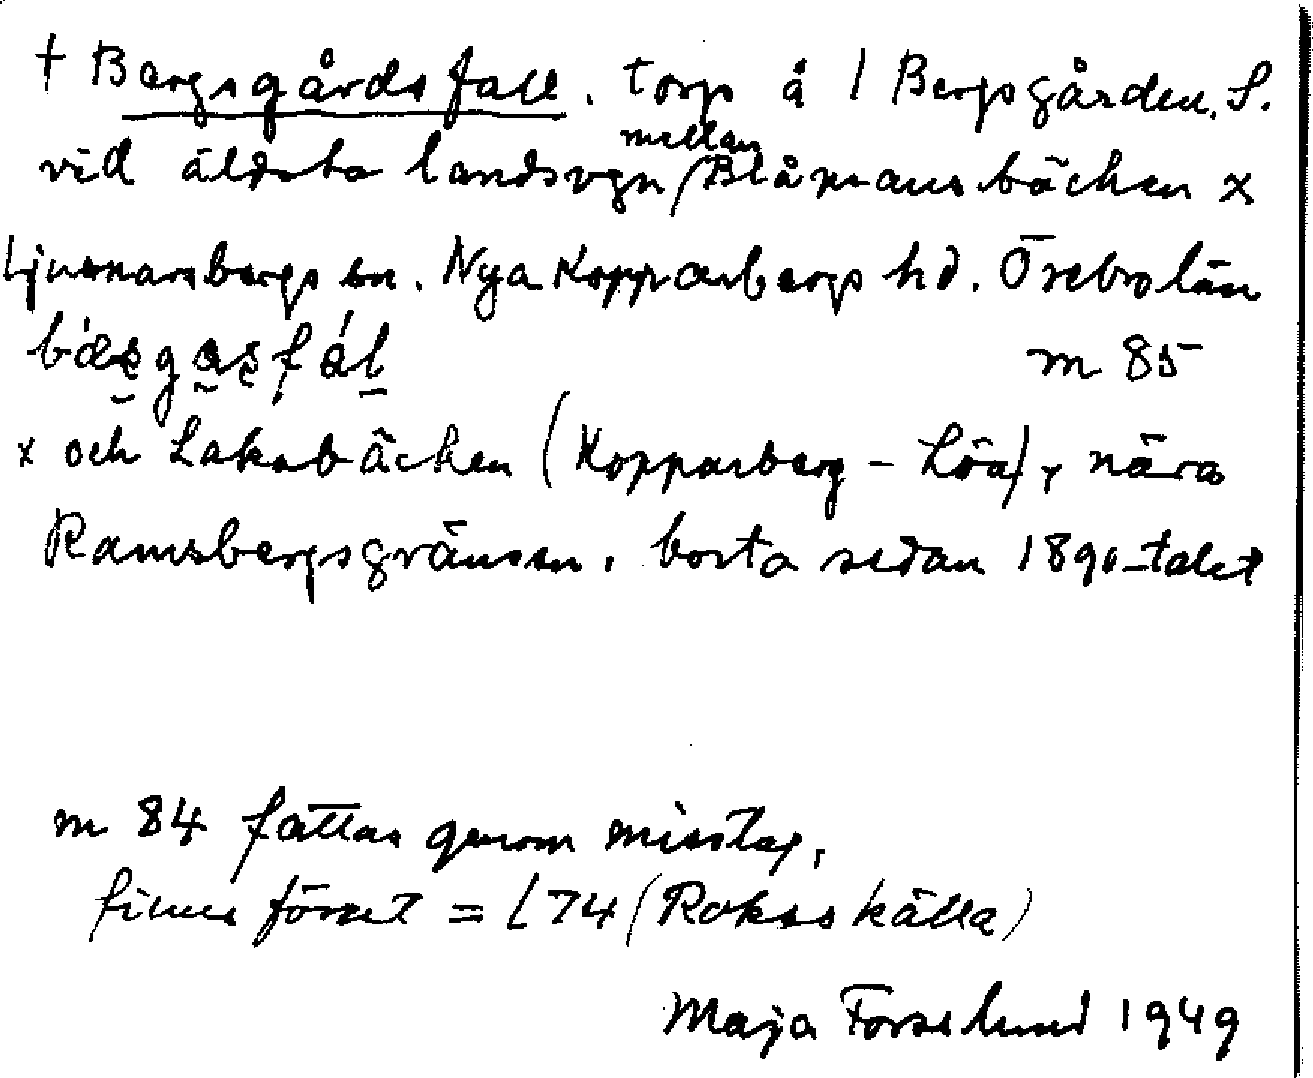 † Bergsgårdsfall. torp å 1 Bergsgården, S.
vid äldsta landsvgn mellan Blåmansbäcken x
Ljusnarsbergs sn. Nya Kopparbergs hd. Örebro län
m 85
x och Laksbäcken (Kopparberg - Löa), nära
Ramsbergsgränsen. borta sedan 1890-talet
m 84 fattas genom misstag,
finns förut = L74 (Rokas källa)
Maja Forslund 1949